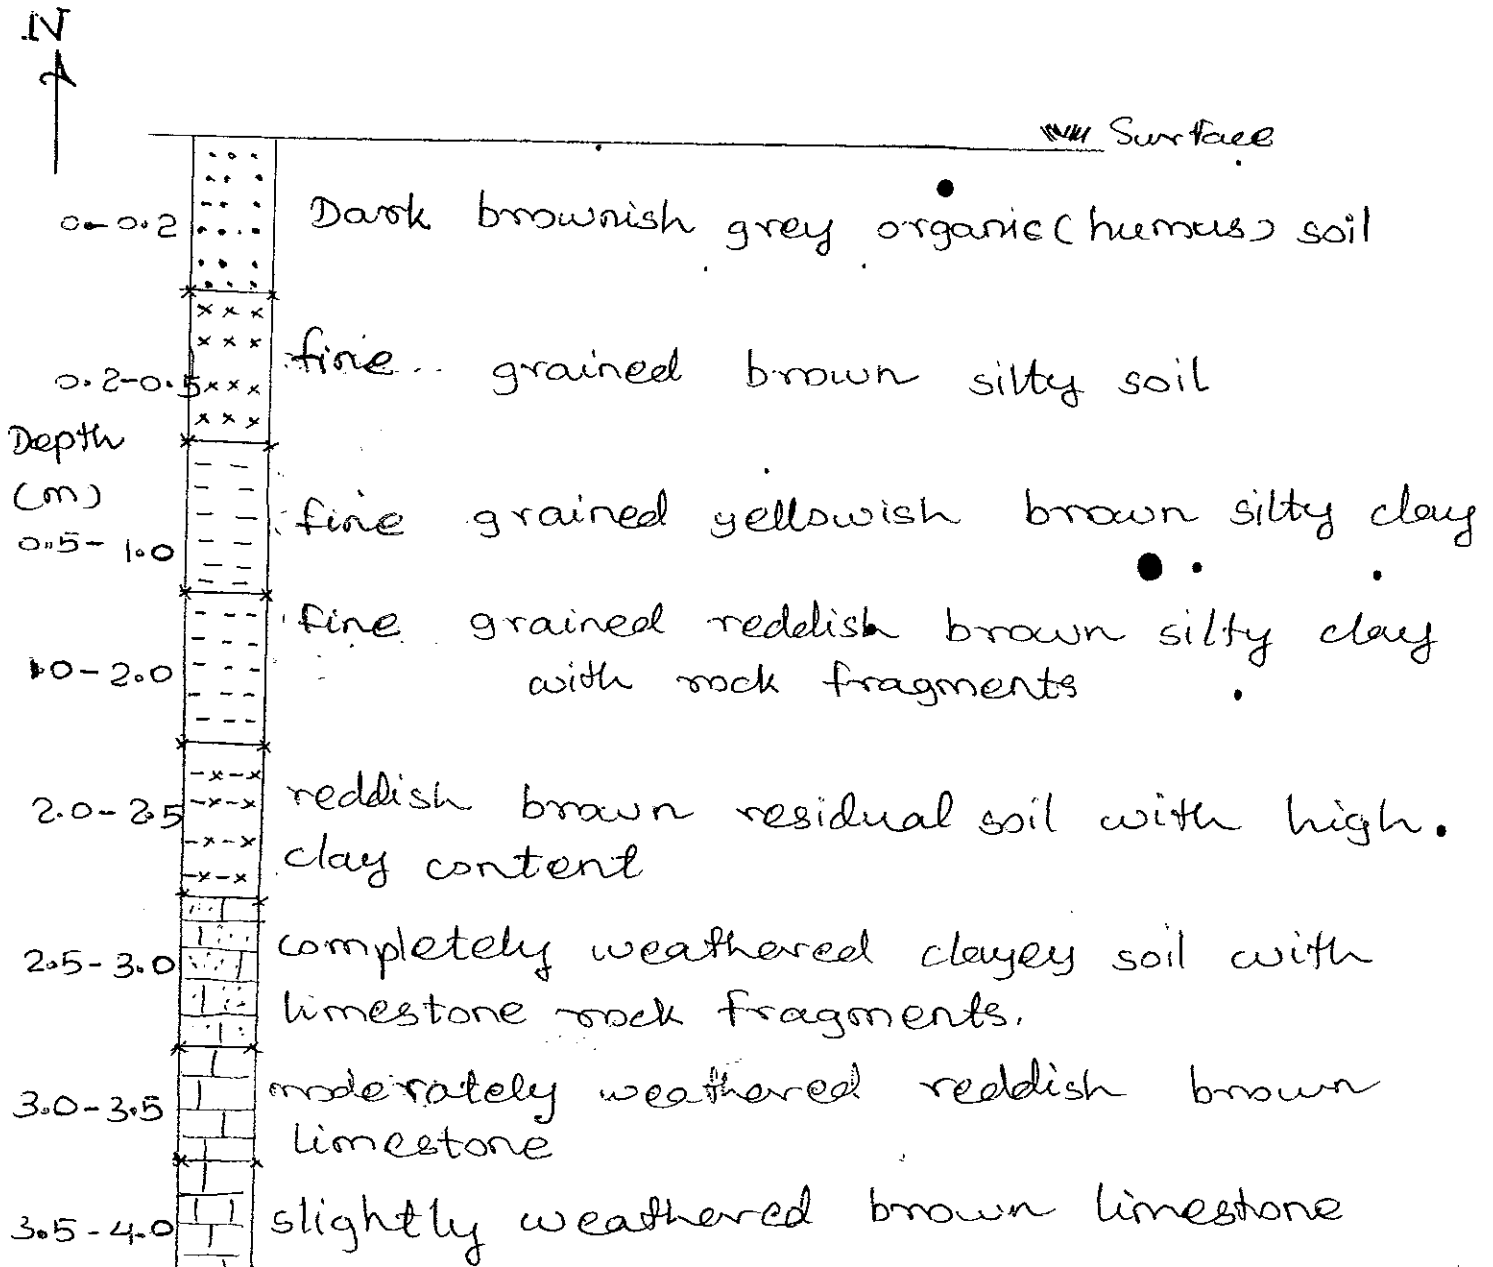 N
Surface
0-0.2 Dark brownish grey organic (humus) soil
0.2-0.5 fine grained brown silty soil
Depth
(m)
0.5-1.0 fine grained yellowish brown silty clay
1.0-2.0 fine grained reddish brown silty clay
with rock fragments
2.0-2.5 reddish brown residual soil with high
clay content
2.5-3.0 completely weathered clayey soil with
limestone rock fragments.
3.0-3.5 moderately weathered reddish brown
limestone
3.5-4.0 slightly weathered brown limestone